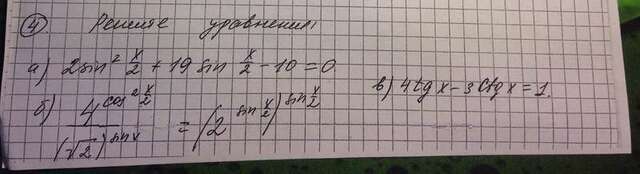 ④. Решите уравнения:
а) 2sin² x/2 + 19 sin x/2 - 10 = 0
б) 4^(cos² x/2) / (√2)^(sin x) = (2^(sin x/2))^(sin x/2)
в) 4tgx - 3ctgx = 1.